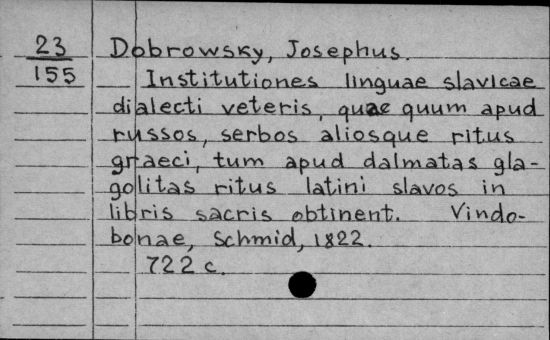 23 Dobrowsky, Josephus.
155 Institutiones linguae slavicae
dialecti veteris, quae quum apud
russos, serbos aliosque ritus
graeci, tum apud dalmatas gla-
golitas ritus latini slavos in
libris sacris obtinent. Vindo-
bonae, Schmid, 1822.
722 c.